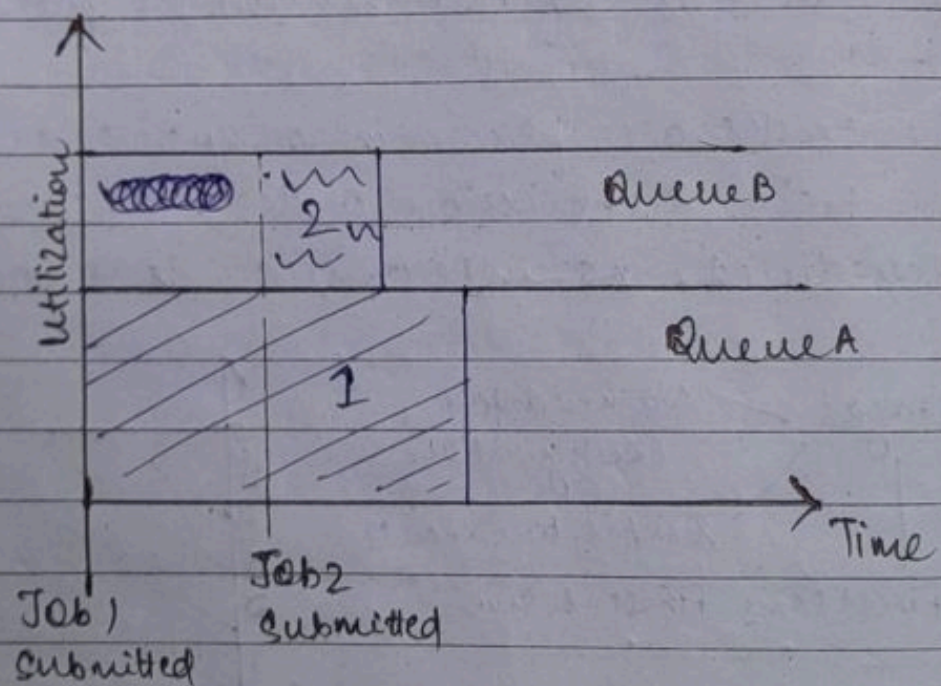 Utilization
2
Queue B
1
Queue A
Time
Job 1
submitted
Job 2
submitted